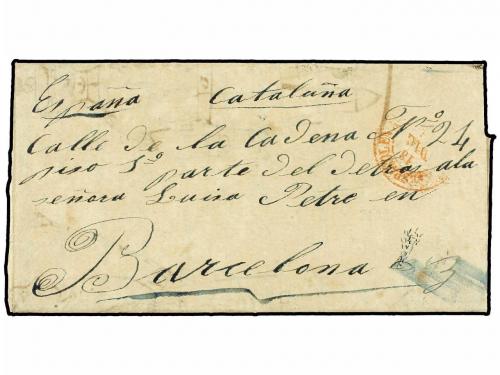 España Cataluña
Calle de la Cadena Nº 24
piso 1º parte del detras ala
señora Luisa Petre en
Barcelona